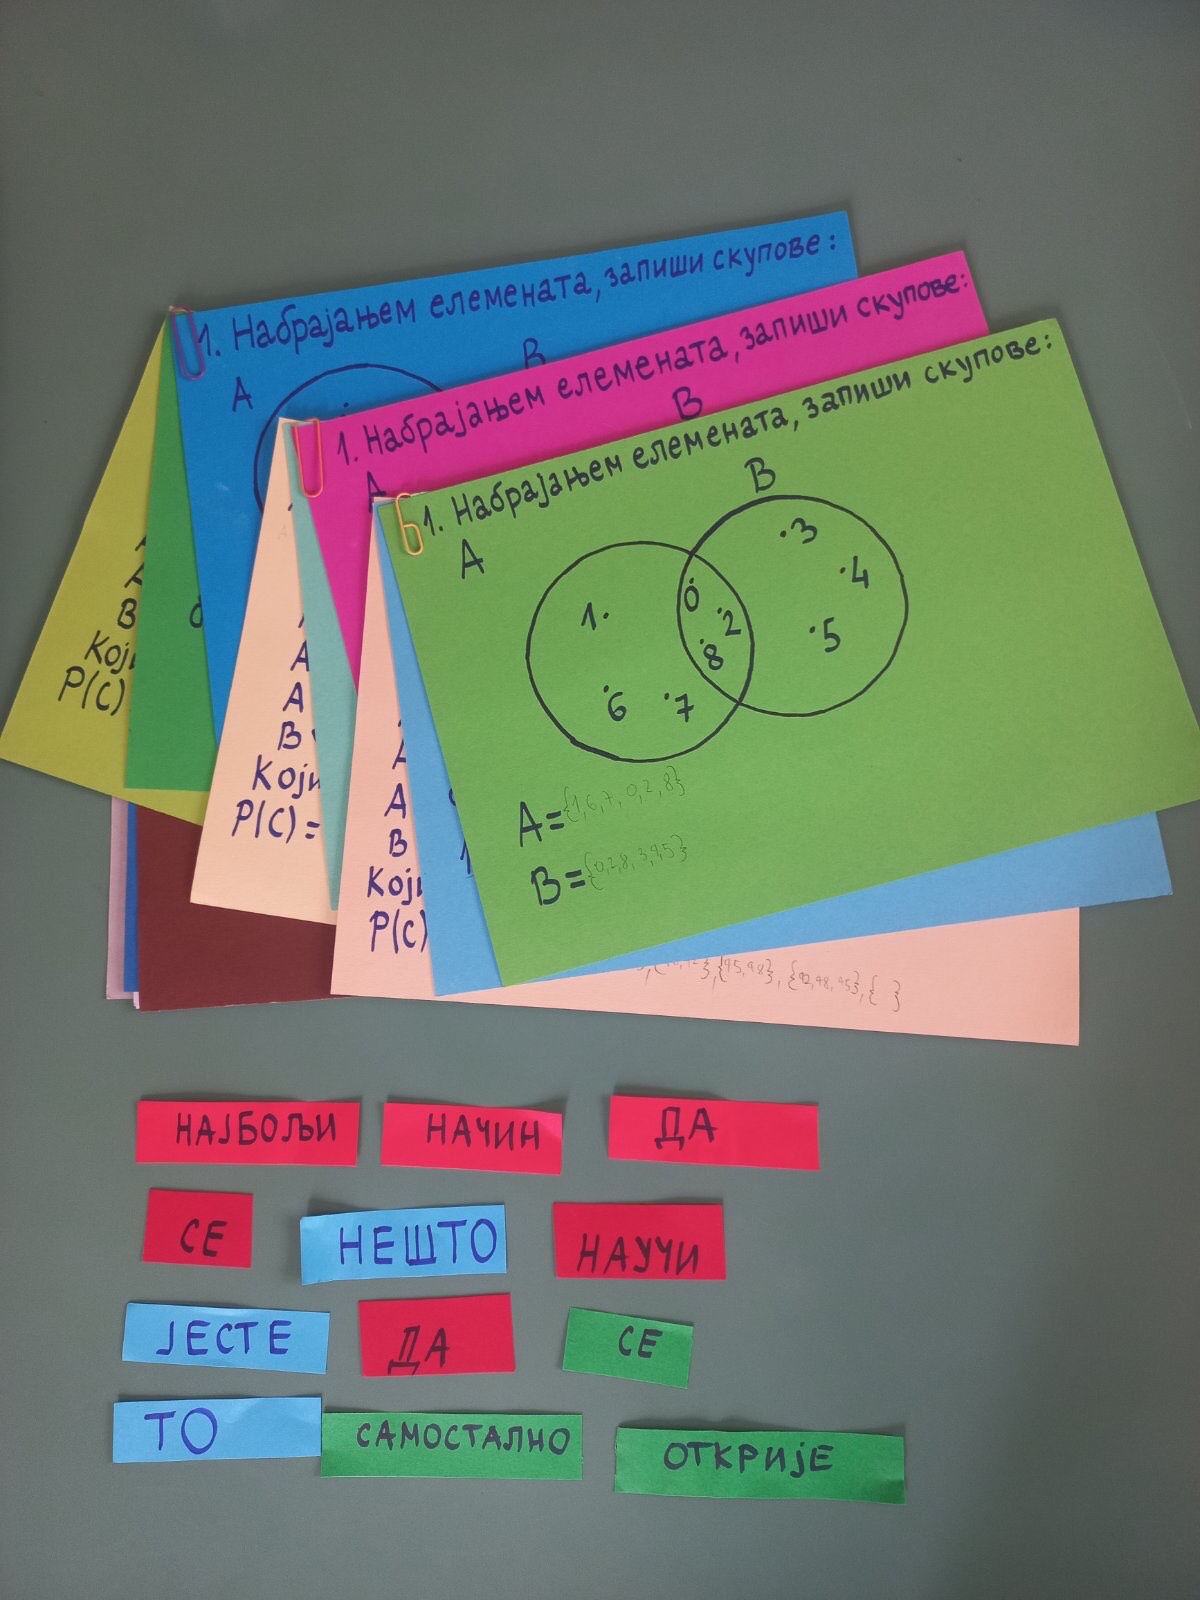 1. Набрајањем елемената, запиши скупове:
A
B
1. Набрајањем елемената, запиши скупове:
A
B
1. Набрајањем елемената, запиши скупове:
A
B
1
6
7
0
2
8
3
4
5
A={1,6,7,0,2,8}
B=
B
P(C)
A
A
B
P(C)=
A
A
B
P(C)
НАЈБОЉИ НАЧИН ДА
СЕ НЕШТО НАУЧИ
ЈЕСТЕ ДА СЕ
ТО САМОСТАЛНО ОТКРИЈЕ